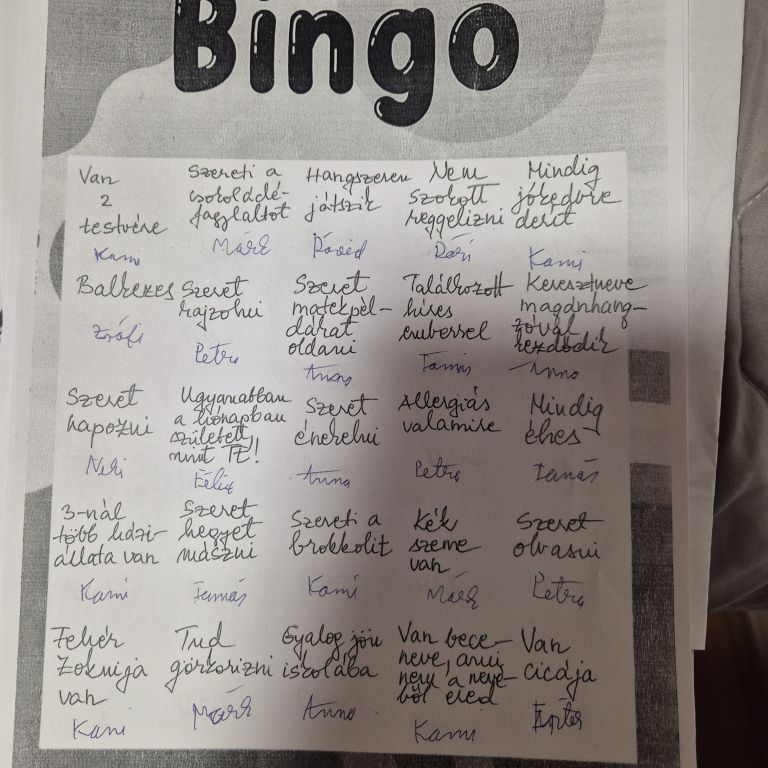 Bingo
Van
2
testvére
Kami
Szereti a
csokoládé-
fagylaltot
Márk
Hangszeren
játszik
Dávid
Nem
szokott
reggelizni
Mindig
jókedvre
derít
Kami
Balkezes
Zsófi
Szeret
rajzolni
Petra
Szeret
matekpél-
dárat
oldani
Anna
Találkozott
híres
emberrel
Tamás
Keresztneve
magánhang-
zóval
kezdődik
Anna
Szeret
napozni
Ugyanabban
a hónapban
született,
mint TE!
Félix
Szeret
énekelni
Anna
Allergiás
valamire
Petra
Mindig
éhes
Tamás
3-nál
több házi-
állata van
Kami
Szeret
hegyet
mászni
Tamás
Szereti a
brokkolit
Kami
Kék
szeme
van
Márk
Szeret
olvasni
Petra
Fehér
zoknija
van
Kami
Tud
görkorizni
Márk
Gyalog jön
iskolába
Anna
Van bece-
neve, ami
nem a neve-
ből ered
Kami
Van
cicája